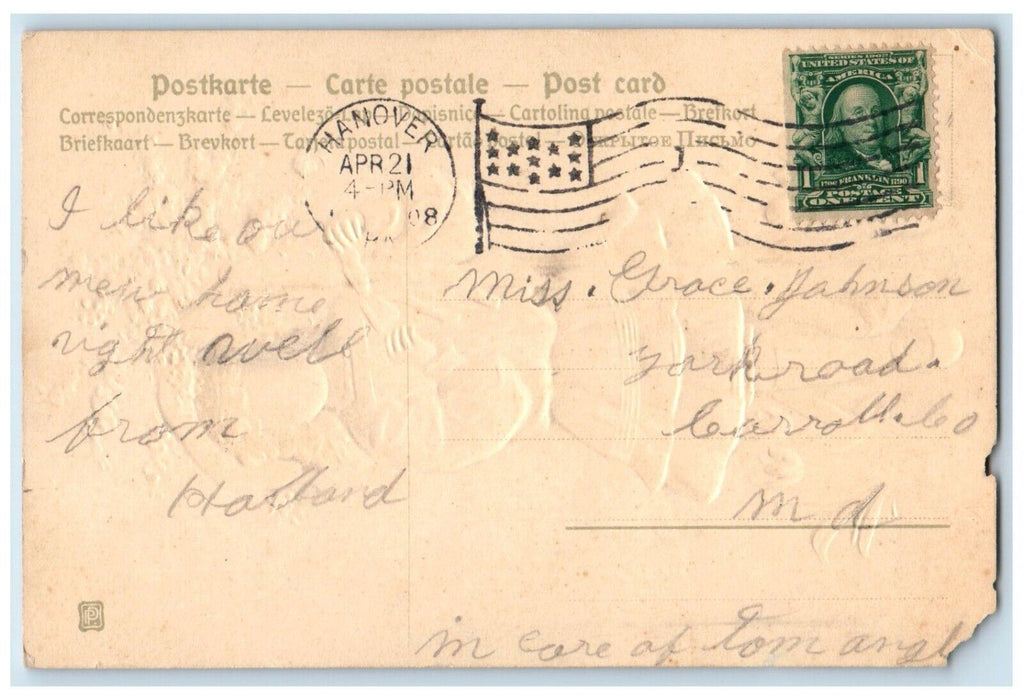 Postkarte — Carte postale — Post card
Correspondenzkarte — Levelező — Cartolina postale — Brefkort
Briefkaart — Brevkort — postal — письмо
SERIES 1902
UNITED STATES OF
AMERICA
1 1706 FRANKLIN 1790 1
POSTAGE
ONE CENT
HANOVER
APR 21
4-PM
08
I like our
new home
right well
from
Miss. Grace. Johnson
York road.
Carroll. Co
Md
in care of tom angl
PP